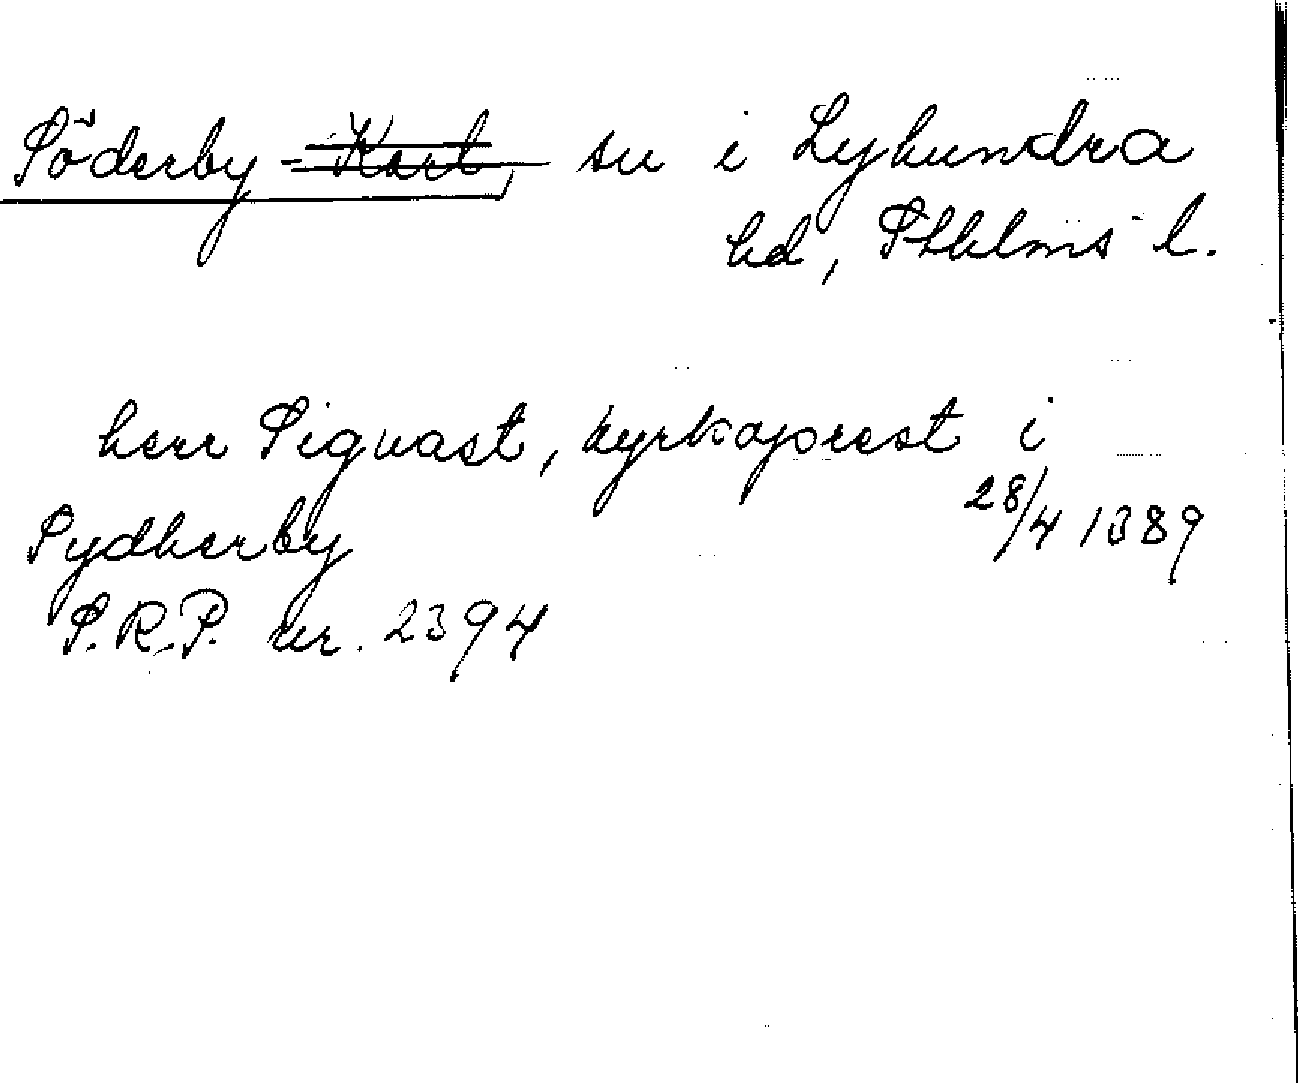 Söderby-Karl, sn i Lyhundra
hd, Sthlms l.
herr Sigvast, kyrkoprest i
Sydherby 28/4 1389
S.R.P. nr. 2394